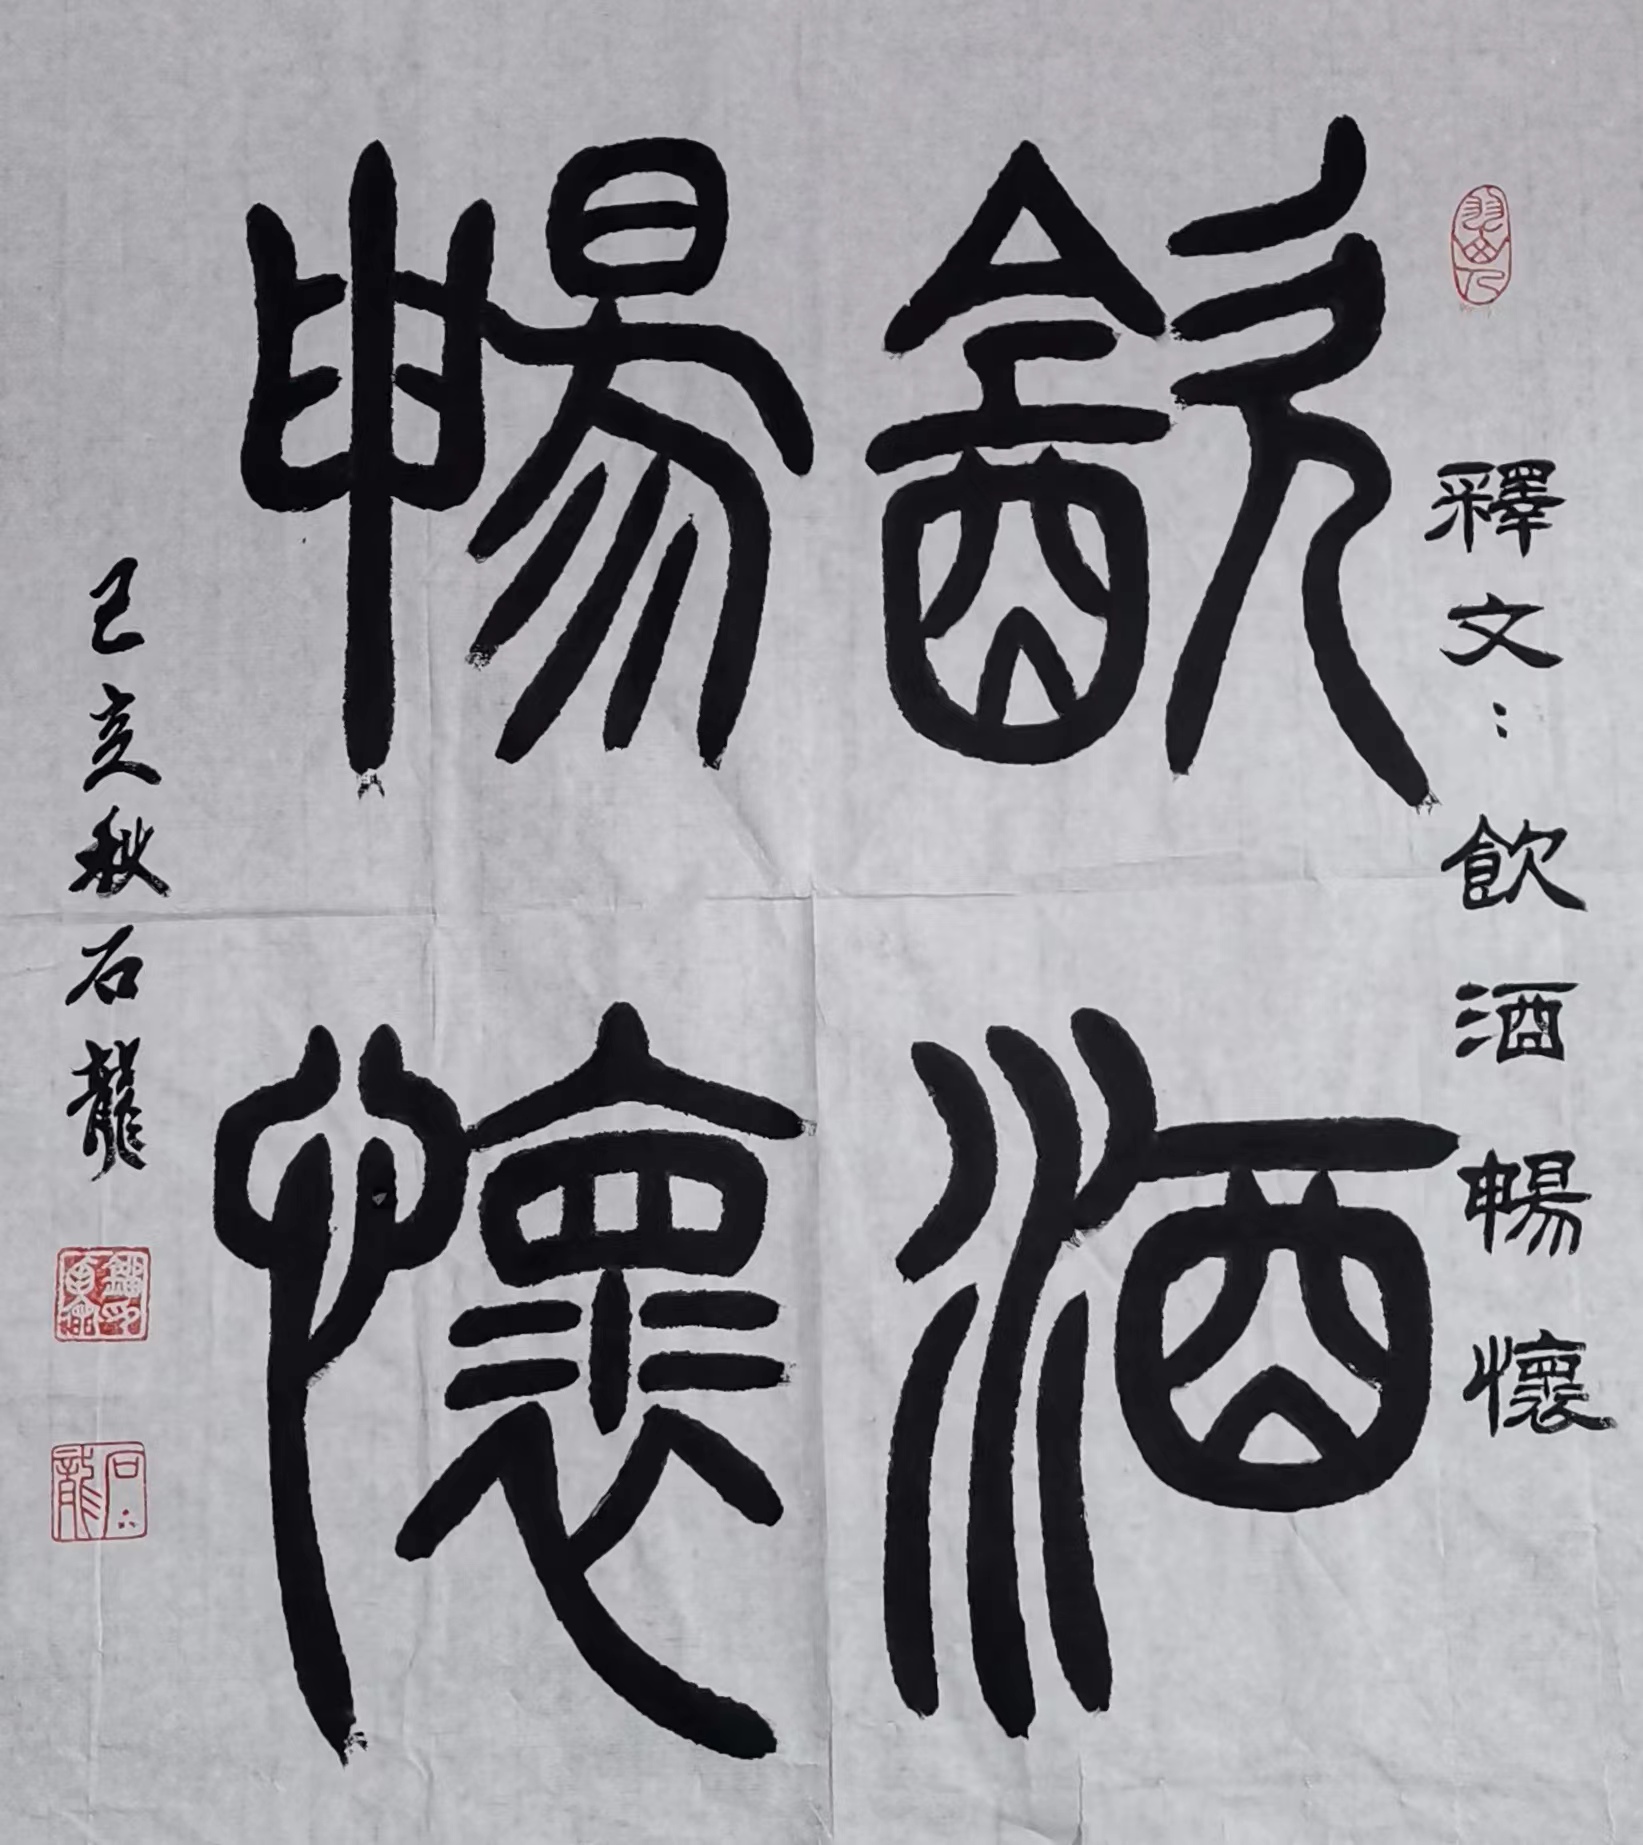 釋文：飲酒暢懷
飲酒
暢懷
己亥秋石龍
石龍